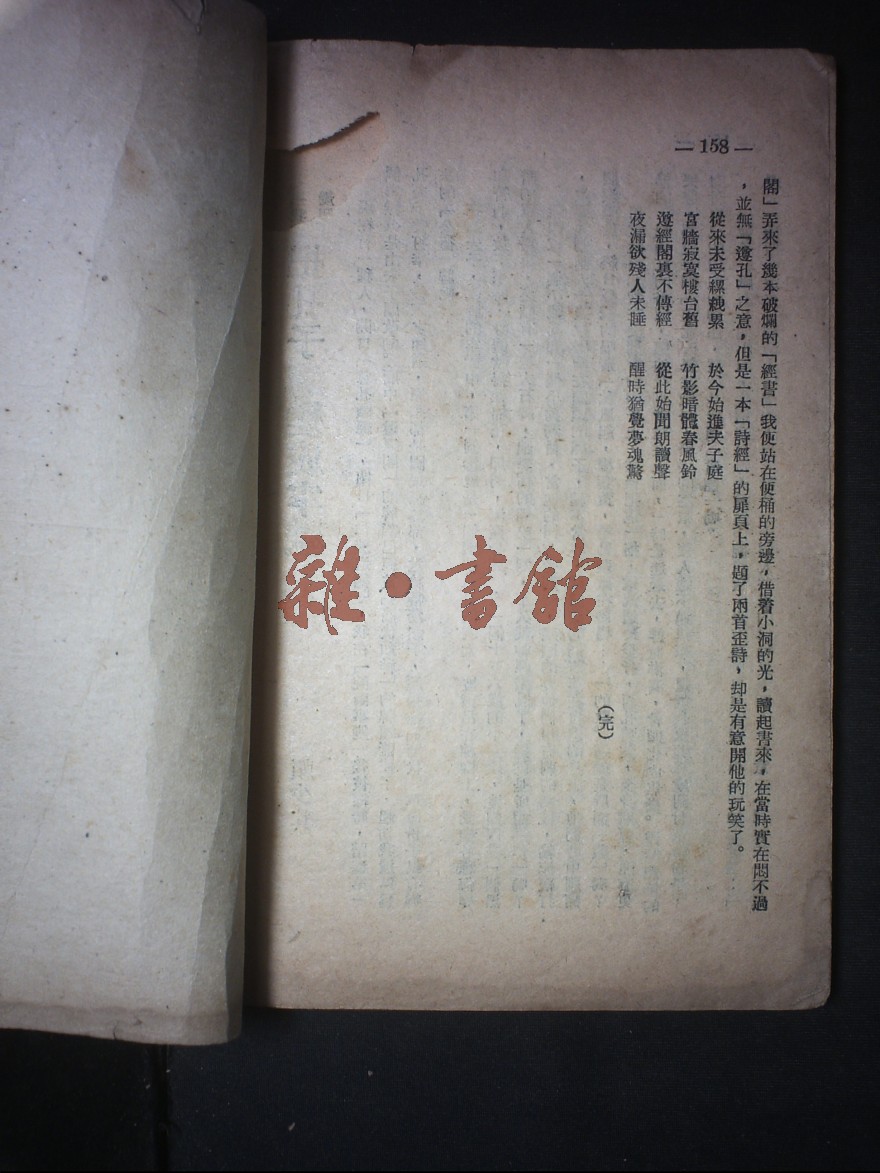 — 158 —
閣」弄來了幾本破爛的「經書」我便站在便桶的旁邊，借着小洞的光，讀起書來，在當時實在悶不過
，並無「遵孔」之意，但是一本「詩經」的扉頁上，題了兩首歪詩，却是有意開他的玩笑了。
從來未受縲絏累　於今始進夫子庭
宮牆寂寞樓台舊　竹影暗體春風鈴
遵經閣裏不傳經　從此始聞朗讀聲
夜漏欲殘人未睡　醒時猶覺夢魂驚
（完）
雜·書館